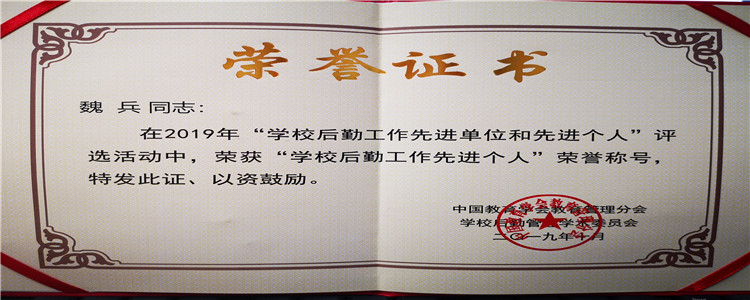 荣誉证书
魏 兵 同志：
在2019年“学校后勤工作先进单位和先进个人”评
选活动中，荣获“学校后勤工作先进个人”荣誉称号，
特发此证、以资鼓励。
中国教育学会教育管理分会
学校后勤管理学术委员会
二〇一九年十月